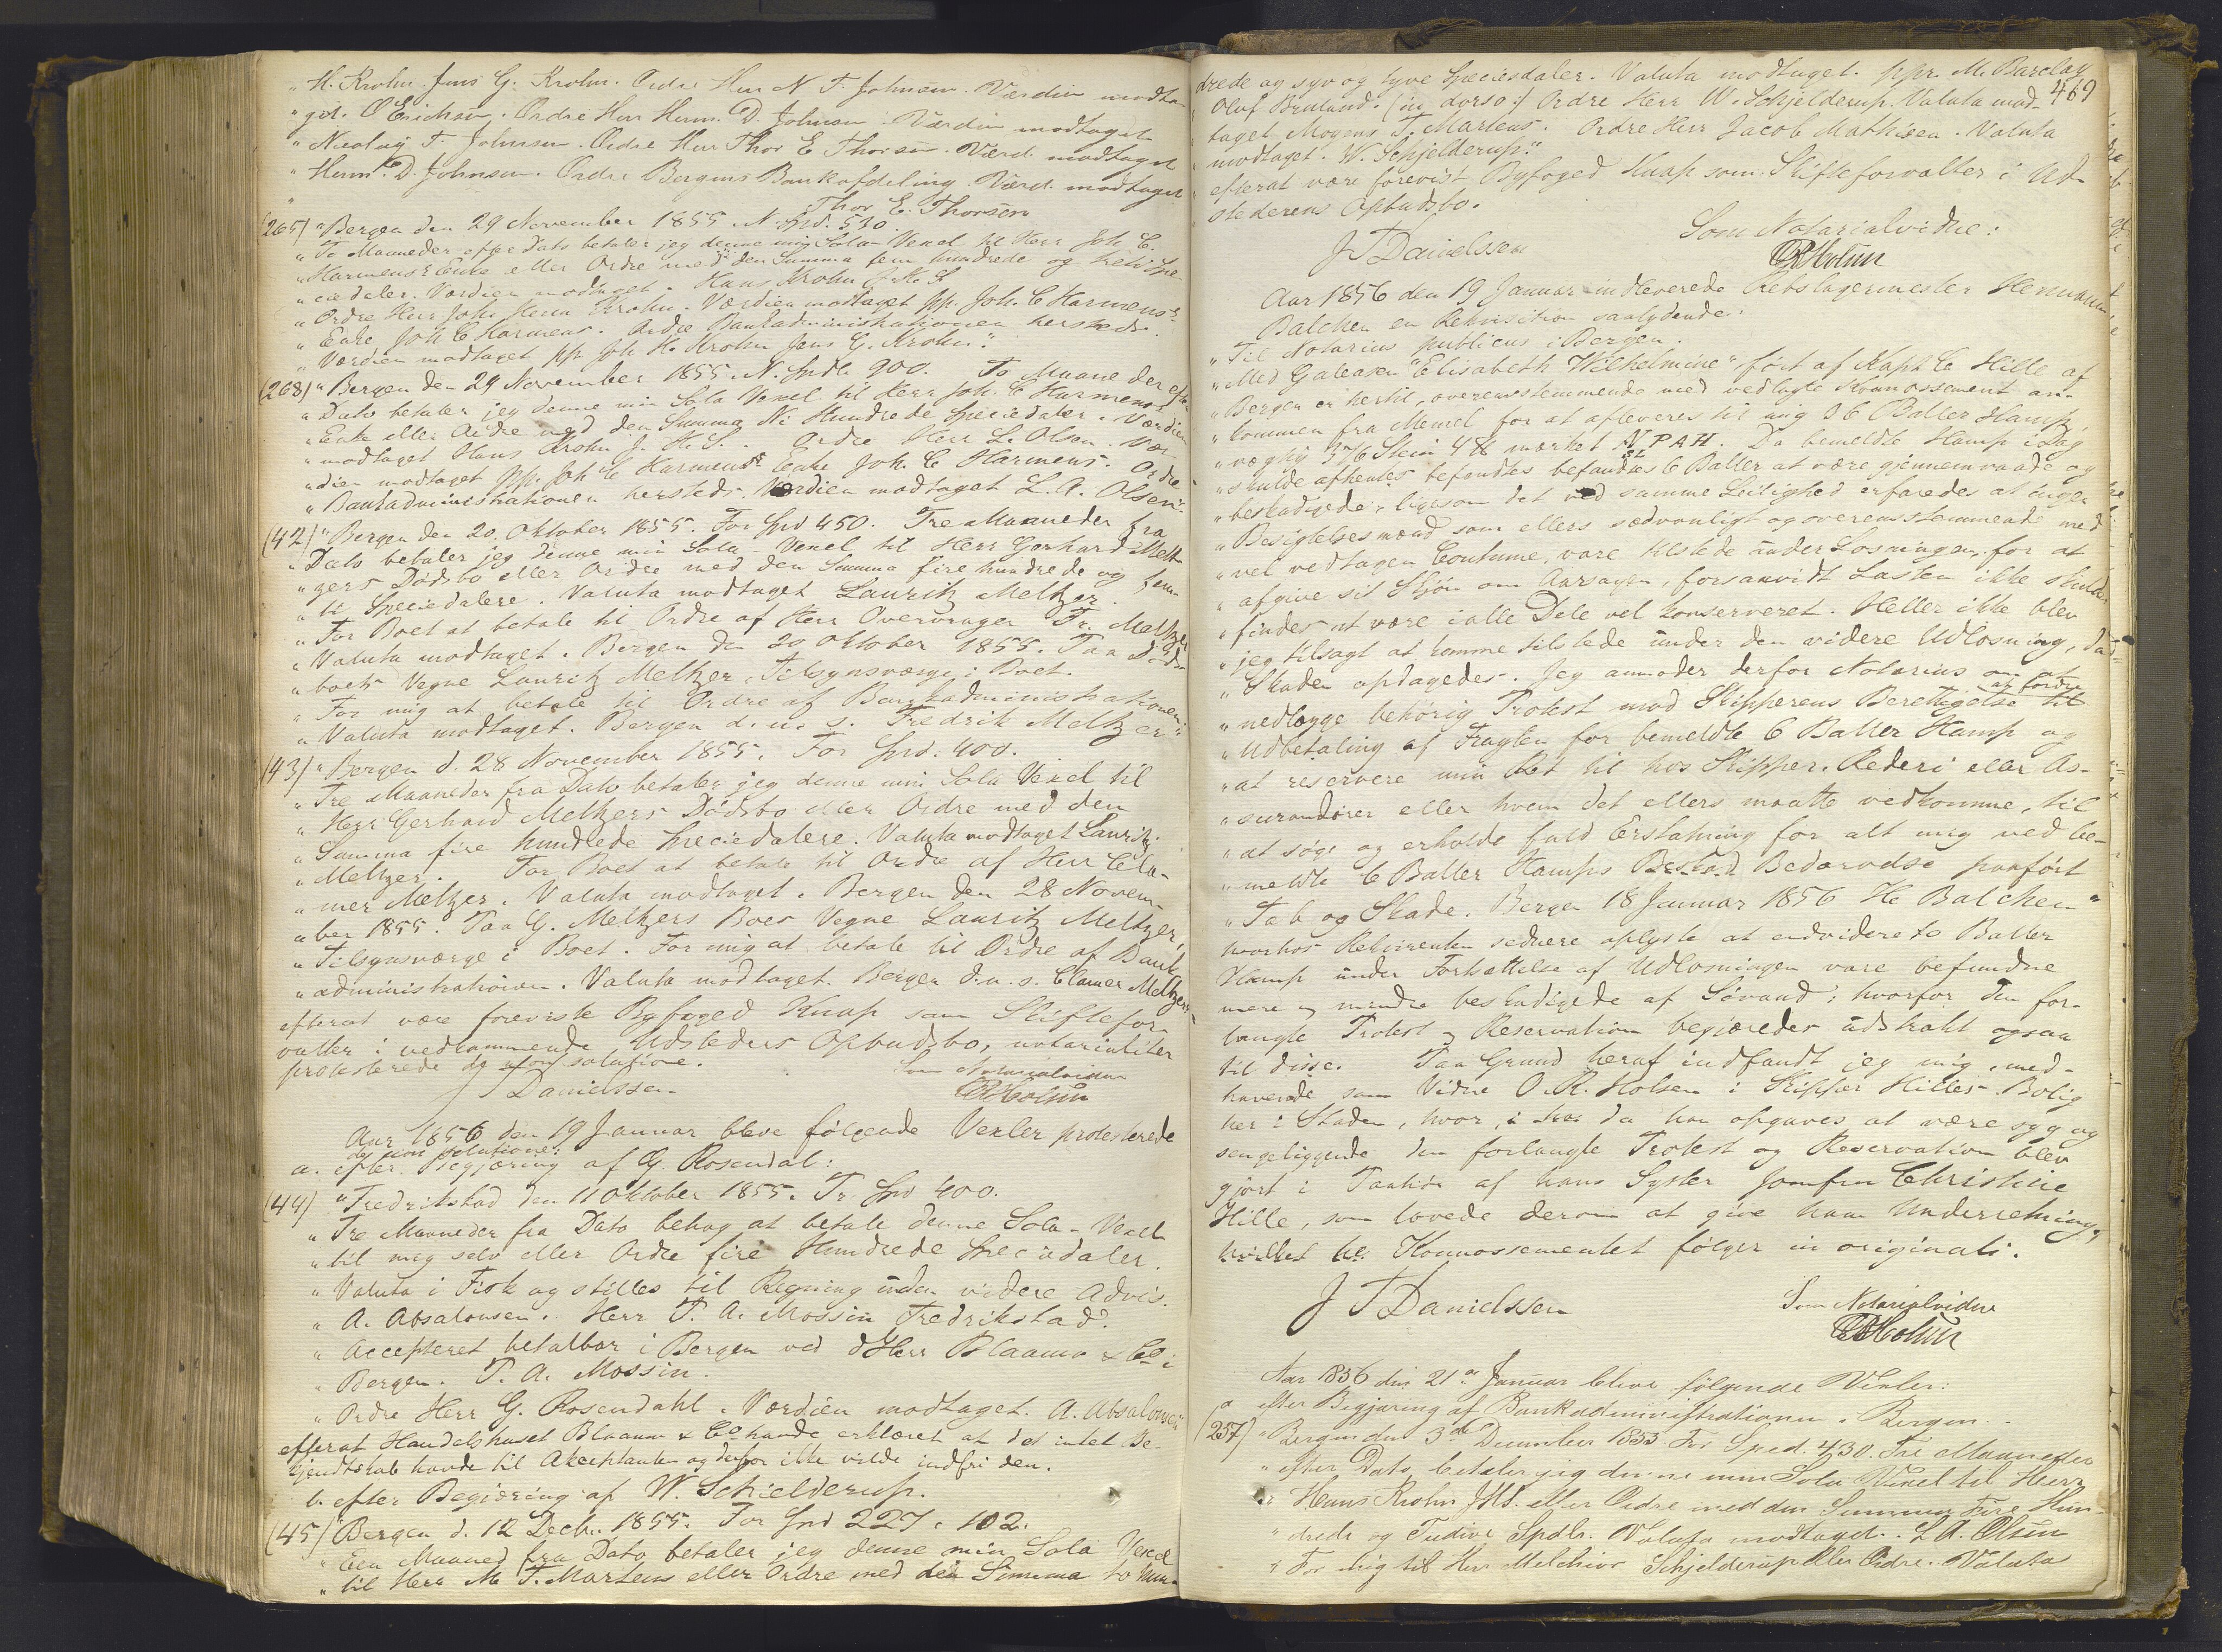 " H. Krohn. Jens G. Krohn. Ordre Herr N. T. Johnsen. Værdien modta-
" get. O Erichsen. Ordre Herr Herm. D. Johnsen. Værdien modtaget
" Nicolay T. Johnsen. Ordre Herr Thor E Thorsen. Værd. modtaget
" Herm. D. Johnsen. Ordre Bergens Bankafdeling. Værd. modtaget
" Thor E. Thorsen
(265) "Bergen den 29 November 1855. N. Spd. 530.
" To Maaneder efter Dato betaler jeg denne min Sola Vexel til Herr Joh C.
" Harmens's Enke eller Ordre med den Summa fem hundrede og tredi Spe-
" ciedaler. Værdien modtaget. Hans Krohn J. H. S.
" Ordre Herr Joh. Herm Krohn. Værdien modtaget pp. Joh. C Harmens's
" Enke Joh C Harmens. Ordre Bankadministrationen hersteds.
" Værdien modtaget pp Joh H. Krohn Jens G. Krohn."
(268) "Bergen den 29 November 1855. N. Spdlr 900. To Maaneder efter
" Dato betaler jeg denne min Sola Vexel til Herr Joh. C Harmens's
" Enke eller Ordre med den Summa Ni Hundrede Speciedaler. Værdien
" modtaget Hans Krohn J. H. S. Ordre Herr L. Olsen. Vær-
" dien modtaget pp. Joh C Harmens's Enke Joh. C Harmens. Ordre
" Bankadministrationen hersteds. Værdien modtaget L. A. Olsen".
(42) "Bergen den 20. Oktober 1855. For Spd 450. Tre Maaneder fra
" Dato betaler jeg denne min Sola-Vexel til Herr Gerhard Melt-
" zers Dødsbo eller Ordre med den Summa fire hundrede og fem-
" ti Speciedalere. Valuta modtaget Lauritz Meltzer.
" For Boet at betale til Ordre af Herr Overvrager Fr. Meltzer
" Valuta modtaget. Bergen den 20 Oktober 1855. Paa Døds-
" boets Vegne Lauritz Meltzer, Tilsynsværge i Boet.
" For mig at betale til Ordre af Bankadministrationen
" Valuta modtaget. Bergen d. u. s. Fredrik Meltzer"
(43) "Bergen d. 28 November 1855. For Spd: 400.
" Tre Maaneder fra Dato betaler jeg denne min Sola Vexel til
" Herr Gerhard Meltzers Dødsbo eller Ordre med den
" Summa fire hundrede Speciedalere. Valuta modtaget Lauritz
" Meltzer. For Boet at betale til Ordre af Herr Cla-
" mer Meltzer. Valuta modtaget. Bergen den 28 Novem-
" ber 1855. Paa G. Meltzers Boes Vegne Lauritz Meltzer,
" Tilsynsværge i Boet. For mig at betale til Ordre af Bank-
" administrationen. Valuta modtaget. Bergen d. u. s. Clamer Meltzer"
efterat være foreviste Byfoged Knap som Skiftefor-
valter i vedkommende Udsteders Opbudsbo, notarialiter
protesterede de non solutione.
Som Notarialvidne
J T Danielssen
OR Holsen
Aar 1856 den 19 Januar bleve følgende Vexler protesterede
de non solutione:
a. efter Begjæring af G. Rosendal:
(44) "Fredrikstad den 11 Oktober 1855. Pr. Spd 400.
" Tre Maaneder fra Dato behag at betale denne Sola-Vexel
" til mig selv eller Ordre fire Hundrede Speciedaler.
" Valuta i Fisk og stilles til Regning uden videre Advis.
" A. Absalonsen. Herr P. A. Mossin Fredrikstad.
" Accepteret betalbar i Bergen ved dHerr Blaauw & Co i
" Bergen. P. A. Mossin.
" Ordre Herr G. Rosendahl. Værdien modtaget. A. Absalonsen"
efterat Handelshuset Blaauw & Co havde erklæret at det intet Be-
kjendtskab havde til Akceptanten og derfor ikke vilde indfri den.
b. efter Begjæring af W. Schjelderup.
(45) "Bergen d. 12 Decbr. 1855. For Spd 227 " 102.
" Een Maaned fra Dato betaler jeg denne min Sola Vexel
" til Herr M. T. Martens eller Ordre med den Summa to hun-
469
drede og syv og tyve Speciesdaler. Valuta modtaget. ppr. M. Barclay
" Oluf Bruland. (in dorso:) Ordre Herr W. Schjelderup. Valuta mod-
" taget Mogens T. Martens. Ordre Herr Jacob Mathisen. Valuta
" modtaget. W. Schjelderup."
efterat være forevist Byfoged Knap som Skifteforvalter i Ud-
stederens Opbudsbo.
Som Notarialvidne:
J T Danielssen
OR Holsen
Aar 1856 den 19 Januar indleverede Rebslagermester Hermann
Balchen en Rekvisition saalydende:
" Til Notarius publicus i Bergen.
" Med Galeasen "Elisabeth Wilhelmine" ført af Kapt C Hille af
" Bergen er hertil, overensstemmende med vedlagte Konnossement an-
" kommen fra Memel for at afleveres til mig 36 Baller Hamp,
" vægtig 376 Stein 4 ℔ mærket N P A H. Da bemeldte Hamp idag
" skulde afhentes befandtes befandtes 6 Baller at være gjennemvaade og
" beskadigede, ligesom det ved samme Leilighed erfaredes at ingen
" Besigtelsesmænd som ellers sædvanligt og overensstemmende med
" vel vedtagen Coutume, vare tilstede under Losningen for at
" afgive sit Skjøn om Aarsagen, forsaavidt Lasten ikke skulde
" findes at være i alle Dele vel konserveret. Heller ikke blev
" jeg tilsagt at komme tilstede under den videre Udlosning, da
" Skaden opdagedes. Jeg anmoder derfor Notarius om at
" nedlægge behørig Protest mod Skipperens Berettigelse til at fordre
" Udbetaling af Fragten for bemeldte 6 Baller Hamp og
" at reservere min Ret til hos Skipper, Rederi eller As-
" surandører eller hvem det ellers maatte vedkomme, til
" at søge og erholde fuld Erstatning for alt mig ved be-
" meldte 6 Baller Hamps Bedærvelse paaført
" Tab og Skade. Bergen 18 Januar 1856 H. Balchen"
hvorhos Rekvirenten sednere oplyste at endvidere to Baller
Hamp under Fortsættelse af Udlosningen vare befundne
mere og mindre beskadigede af Søvand; hvorfor den for-
langte Protest og Reservation begjæredes udstrakt ogsaa
til disse. Paa Grund heraf indfandt jeg mig, med-
havende som Vidne O. R. Holsen i Skipper Hilles Bolig
her i Staden, hvor, da han opgaves at være syg og
sengeliggende den forlangte Protest og Reservation blev
gjort i Paahør af hans Syster Jomfru Christine
Hille, som lovede derom at give ham Underretning,
hvilket Konnossementet følger in originali.
Som Notarialvidne
J T Danielssen
OR Holsen
Aar 1856 den 21de Januar bleve følgende Vexler:
a efter Begjæring af Bankadministrationen i Bergen.
(257) "Bergen den 3de December 1855 For Spd. 430. Tre Maaneder
" efter Dato betaler jeg denne min Sola Vexel til Herr
" Hans Krohn JHS. eller Ordre med den Summa Fire Hun-
" drede og Tredive Spdlr. Valuta modtaget. L A. Olsen
" For mig til Herr Melchior Schjelderup eller Ordre. Valuta